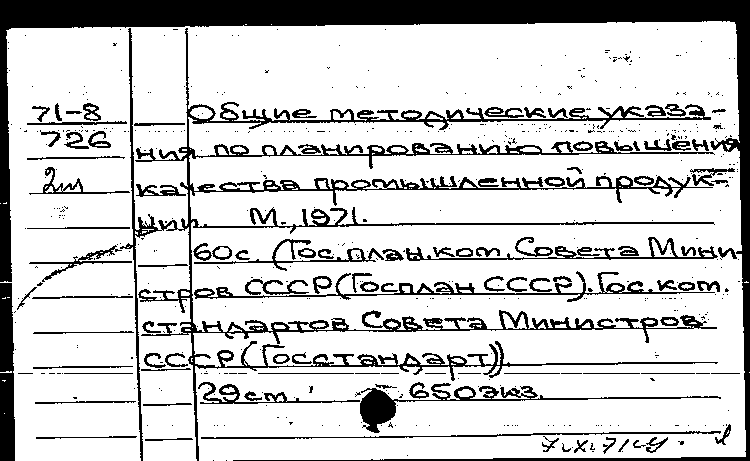 71-8 Общие методические указа-
726
ния по планированию повышения
2м качества промышленной продук-
ции. М., 1971.
60с. (Гос. план. ком. Совета Мини-
стров СССР (Госплан СССР). Гос. ком.
стандартов Совета Министров
СССР (Госстандарт)).
29см. 650экз.